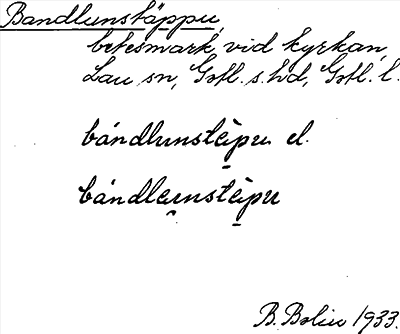 Bandlunstäppu,
betesmark vid kyrkan,
Lau sn, Gotl. s. hd, Gotl. l.
bándlunstèpu el.
bándleunstèpu
B. Bolin 1933.